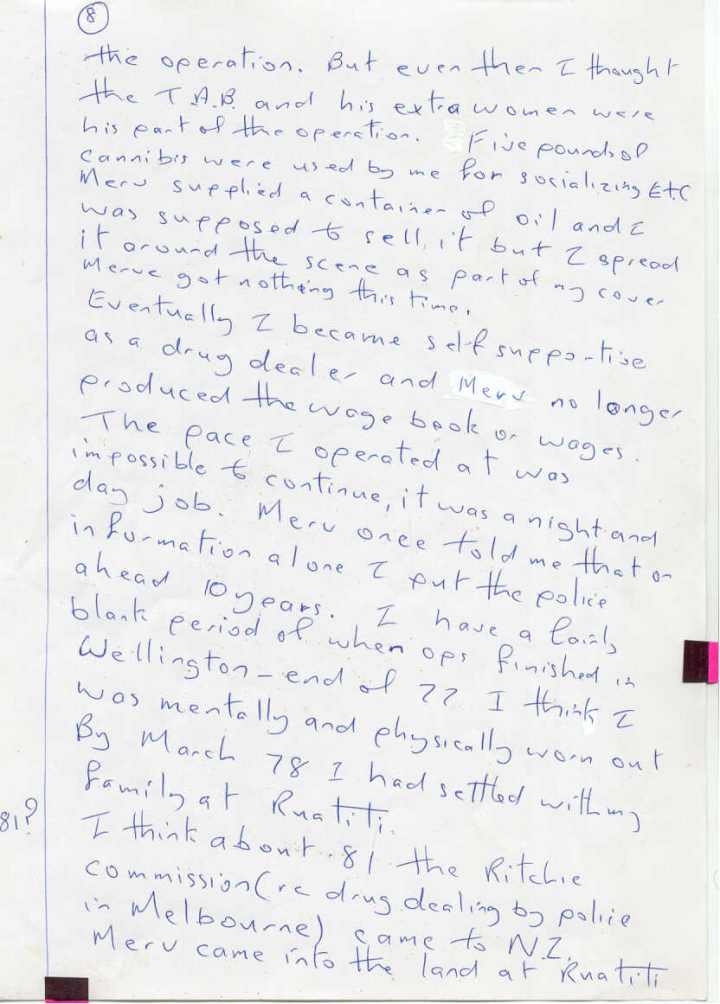 8
the operation. But even then I thought
the T.A.B. and his extra women were
his part of the operation. Five pounds of
cannibis were used by me for socializing Etc
Merv supplied a container of oil and I
was supposed to sell, it but I spread
it around the scene as part of my cover
Merve got nothing this time.
Eventually I became self supportive
as a drug dealer and Merv no longer
produced the wage book or wages.
The pace I operated at was
impossible to continue, it was a night and
day job. Merv once told me that on
information alone I put the police
ahead 10 years. I have a fairly
blank period of when ops finished in
Wellington - end of 77 I think I
was mentally and physically worn out
By March 78 I had settled with my
family at Ruatiti.
81?
I think about .81 the Ritchie
commission (re drug dealing by police
in Melbourne) came to N.Z.
Merv came into the land at Ruatiti